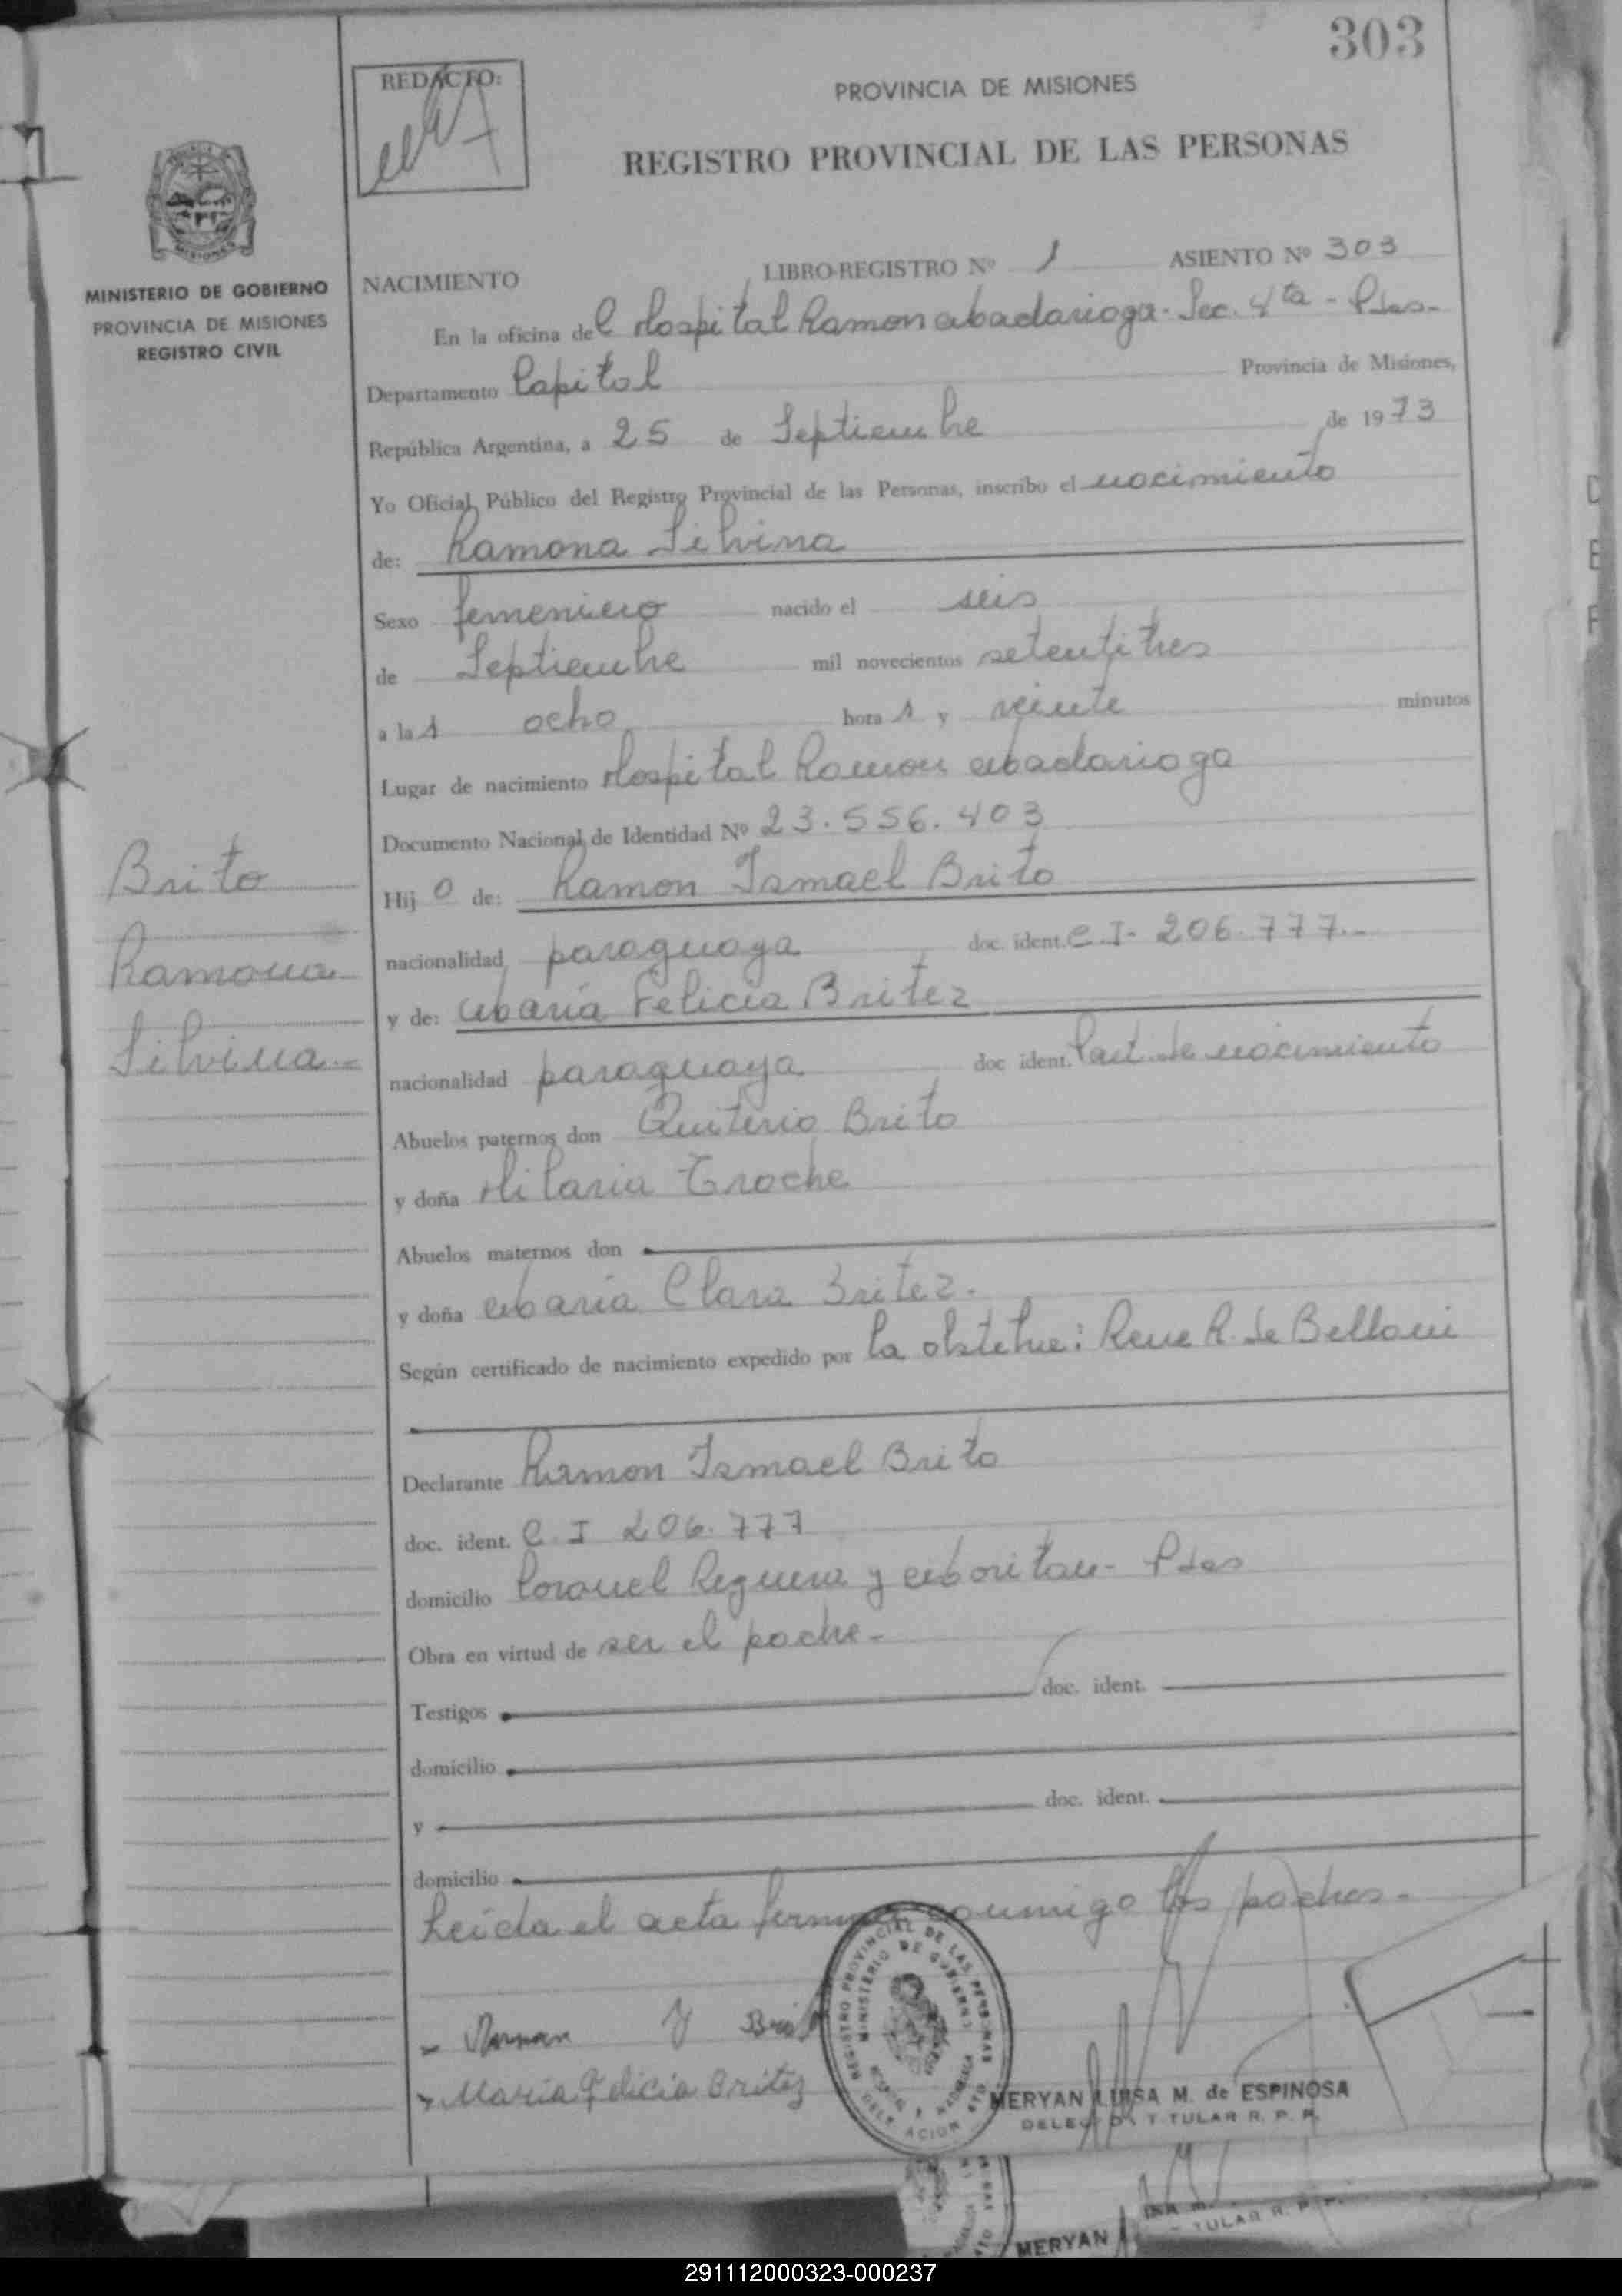 303
REDACTO:
PROVINCIA DE MISIONES
REGISTRO PROVINCIAL DE LAS PERSONAS
MISIONES
MINISTERIO DE GOBIERNO
PROVINCIA DE MISIONES
REGISTRO CIVIL
NACIMIENTO LIBRO-REGISTRO Nº 1 ASIENTO Nº 303
En la oficina del Hospital Ramon Madariaga - Sec. 4ta - Pdas-
Departamento Capital Provincia de Misiones,
República Argentina, a 25 de Septiembre de 1973
Yo Oficial Público del Registro Provincial de las Personas, inscribo el nacimiento
de: Ramona Silvina
Sexo femenino nacido el seis
de Septiembre mil novecientos setentitres
a las ocho horas y veinte minutos
Lugar de nacimiento Hospital Ramon Madariaga
Documento Nacional de Identidad Nº 23.556.403
Brito
Hijo de: Ramon Ismael Brito
Ramona
nacionalidad paraguaya doc. ident. C.I- 206.777.-
Silvina -
y de: Maria Felicia Britez
nacionalidad paraguaya doc ident. Part. de nacimiento
Abuelos paternos don Quiterio Brito
y doña Hilaria Troche
Abuelos maternos don
y doña Maria Clara Britez.
Según certificado de nacimiento expedido por la obstetre: Rene R. de Belloni
Declarante Ramon Ismael Brito
doc. ident. C.I 206.777
domicilio Coronel Reguera y - Pdas
Obra en virtud de ser el padre -
Testigos doc. ident.
domicilio
y doc. ident.
domicilio
Leida el acta firman conmigo los padres -
Brito
Maria Felicia Britez
REGISTRO PROVINCIAL DE LAS PERSONAS
MINISTERIO DE GOBIERNO
MERYAN LUISA M. de ESPINOSA
DELEGADA TITULAR R. P. P.
MERYAN
TULAR R. P. P.
291112000323-000237